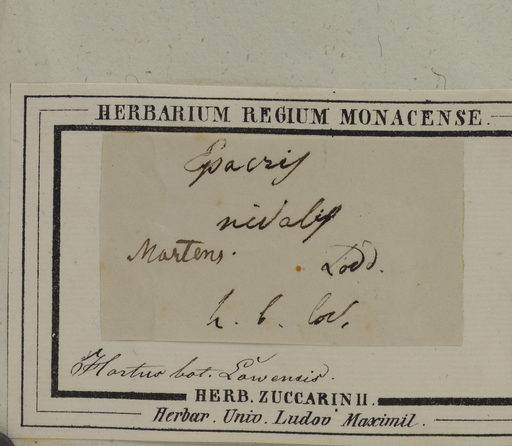 HERBARIUM REGIUM MONACENSE.
Epacris
nivalis
Martens. Lodd.
h. b. lov.
Hortus bot. Lowensis.
HERB. ZUCCARINII.
Herbar. Univ. Ludov Maximil.